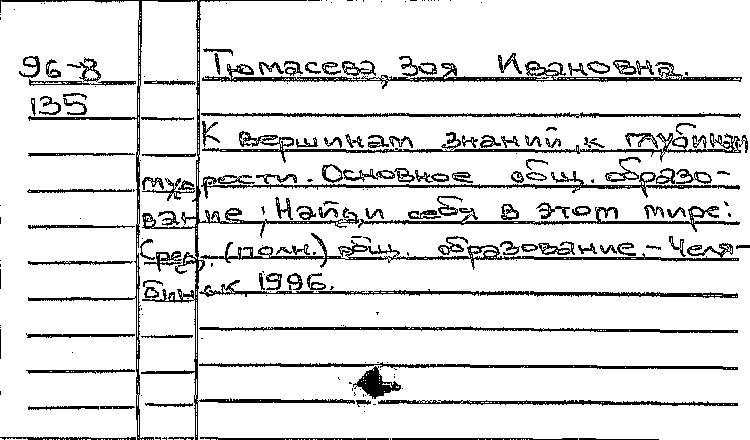 96-8 Тюмасева, Зоя Ивановна.
135
К вершинам знаний, к глубинам
мудрости. Основное общ. образо-
вание; Найди себя в этом мире:
Сред. (полн.) общ. образование. - Челя-
бинск, 1996.